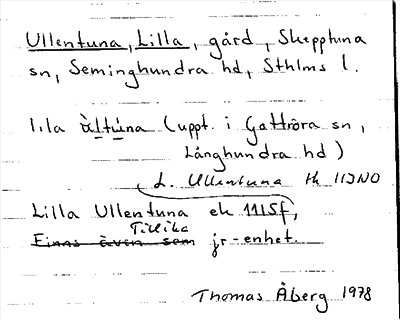 Ullentuna, Lilla, gård, Skepptuna
sn, Seminghundra hd, Sthlms l.
lila àltúna (uppt. i Gottröra sn,
Långhundra hd)
L. Ullentuna tk 11JNO
Lilla Ullentuna ek 11I5f,
Tillika
Finns även som jr-enhet.
Thomas Åberg 1978